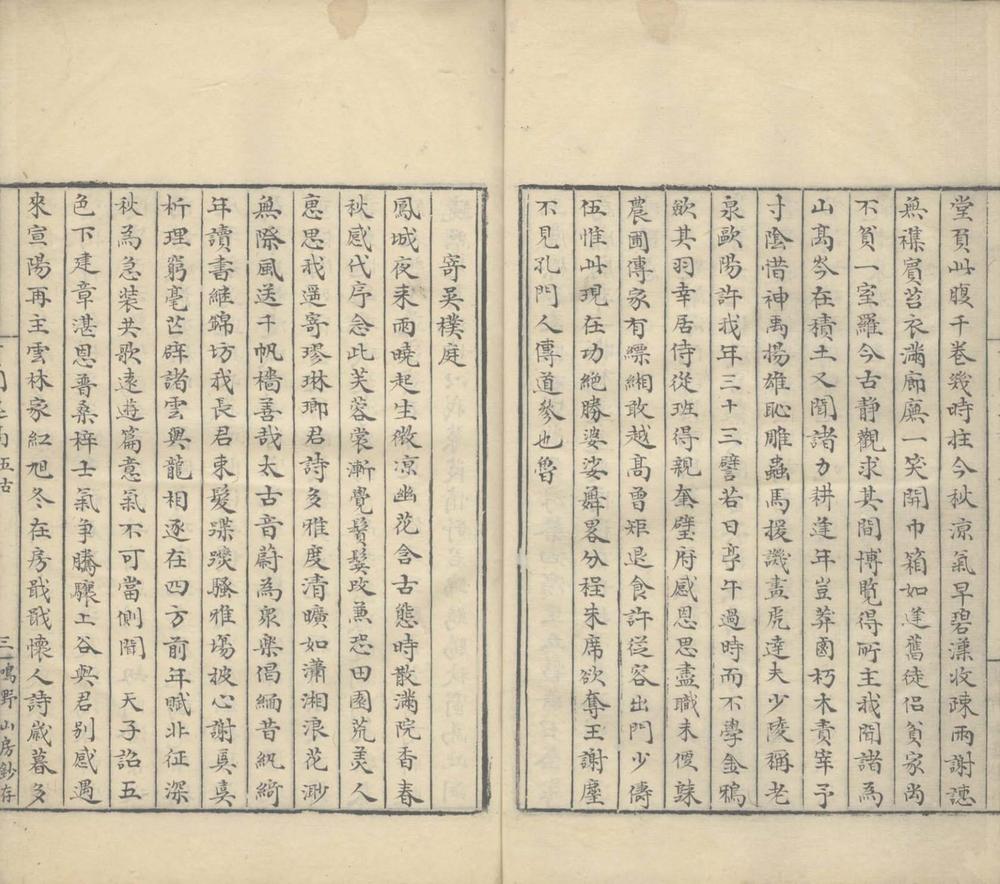 堂頁此腹千卷幾時拄今秋涼氣早碧漢收疎雨謝謥
無襍賓苔衣滿廊廡一笑開巾箱如逢舊徒侣貧家尚
不貟一室羅今古静觀求其間博覧得所主我聞諸為
山髙岑在積土又聞諸力耕逢年豈莽鹵朽木責宰予
寸陰惜神禹揚雄恥雕蟲馬援譏畫虎達夫少陵稱老
泉歐陽許我年三十三譬若日亭午過時而不學金鴉
歛其羽幸居侍從班得親奎璧府感恩思盡職未便竦
農圃傳家有縹緗敢越髙曽矩退食許從容出門少儔
伍惟此現在功絶勝婆娑舞畧分程朱席欲奪王謝麈
不見孔門人傳道參也魯
寄吴樸庭
鳳城夜来雨曉起生微凉幽花含古態時散滿院香春
秋感代序念此芙蓉裳漸覺鬢髮改兼恐田園荒美人
惠思我遥寄璆琳瑯君詩多雅度清曠如瀟湘浪花渺
無際風送千帆檣善哉太古音蔚為衆樂倡緬昔紈綺
年讀書維錦坊我長君束髮蹀躞騷雅塲披心謝奚奚
析理窮毫芒辟諸雲與龍相逐在四方前年賦北征深
秋為急装共歌遠遊篇意氣不可當側聞 天子詔五
色下建章湛恩普桑梓士氣争騰驤上谷與君别感遇
來宣陽再主雲林家紅旭冬在房戢戢懷人詩歳暮多
五古
三
鳴野山房鈔存